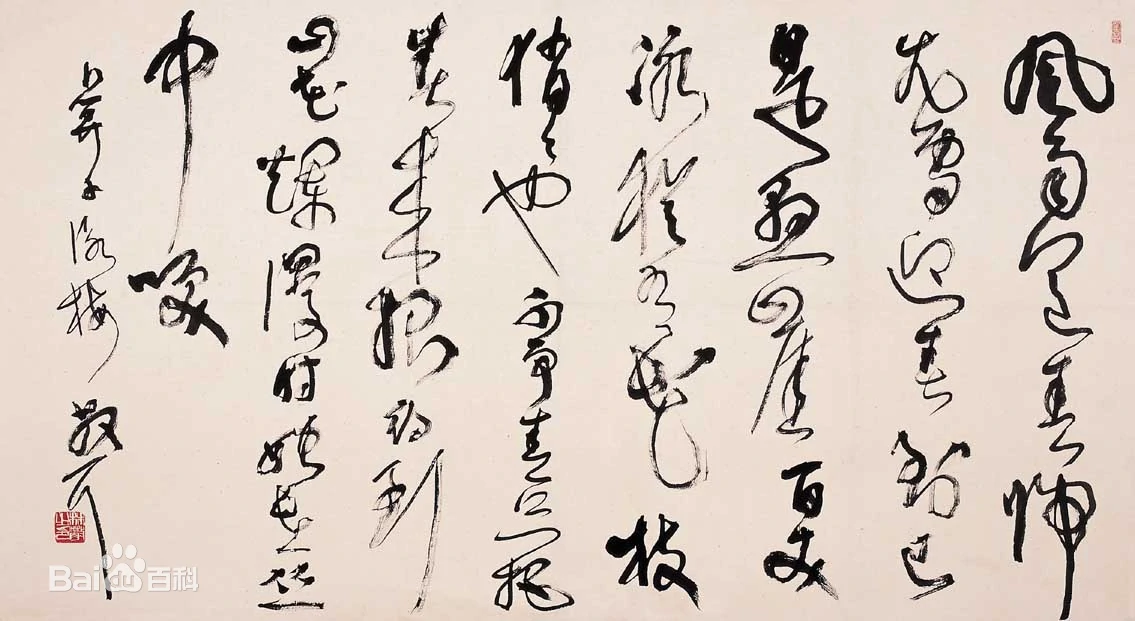 风雨送春归
飞雪迎春到已
是悬崖百丈
冰犹有花枝
俏々也不争春只把
春来报待到
山花烂漫时她在丛
中笑
卜算子咏梅 散耳
林散之印
Baidu百科